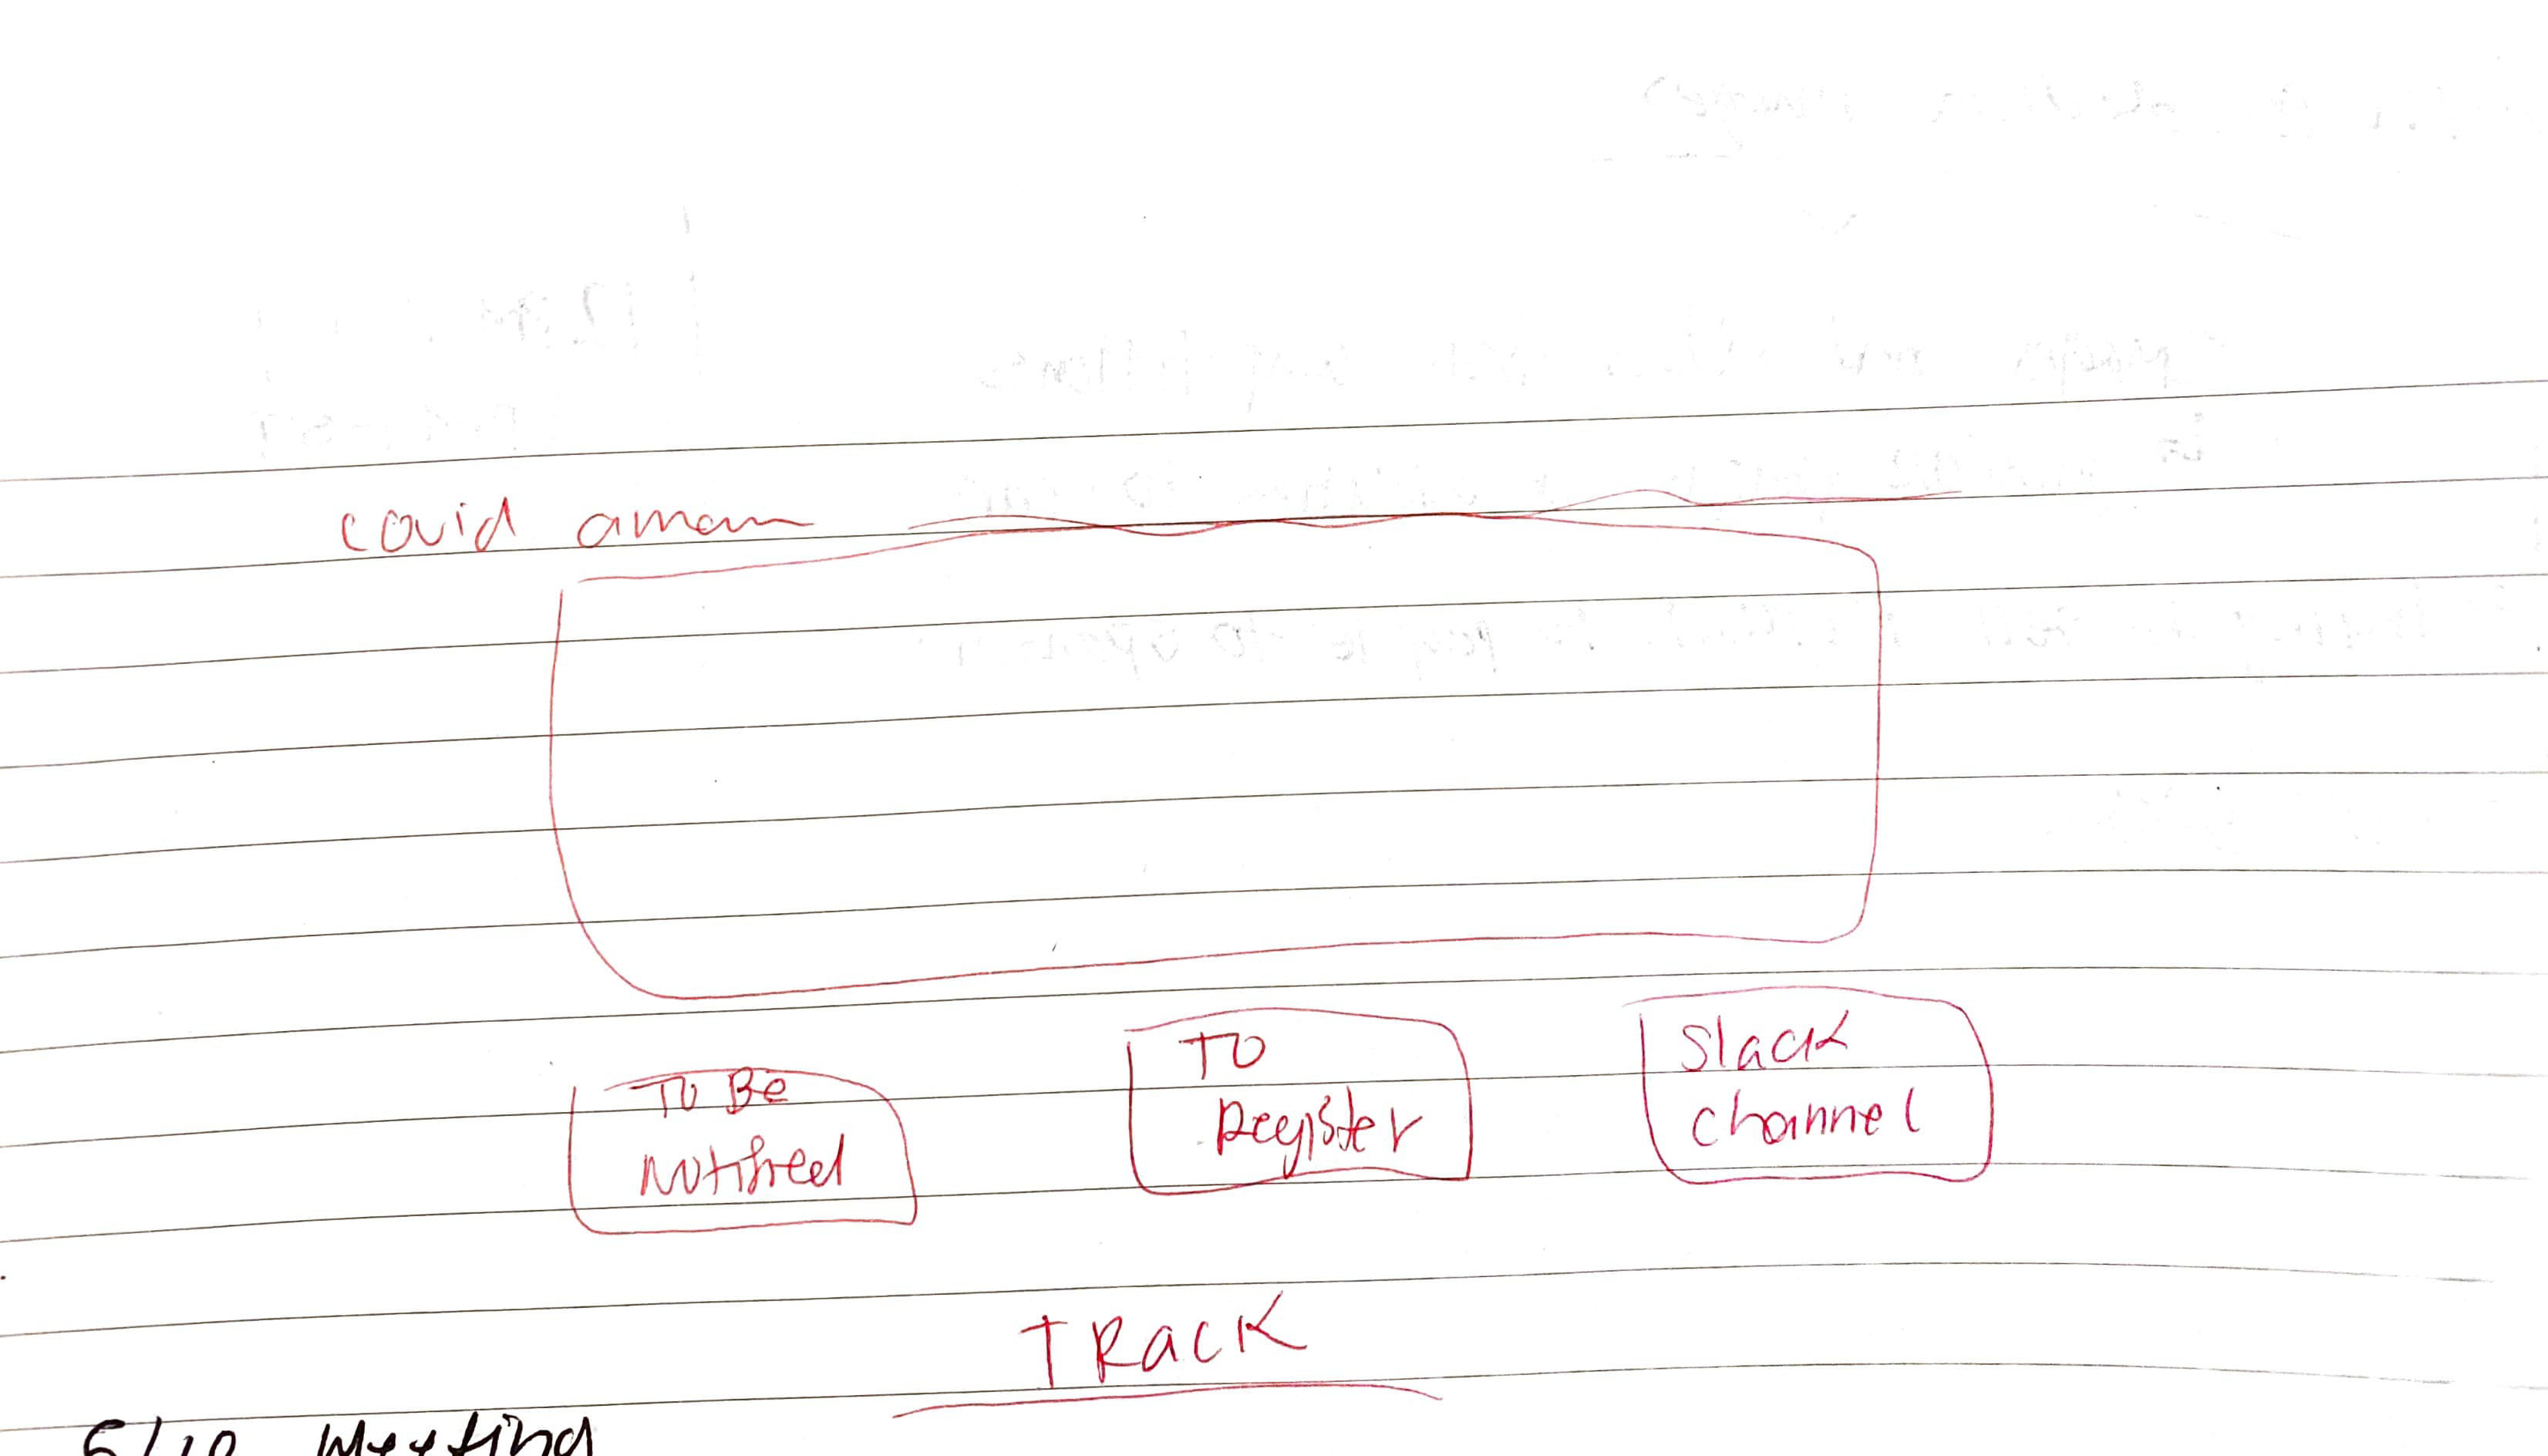 covid aman
To Be
Notified
TO
Register
Slack
channel
TRACK
Meeting